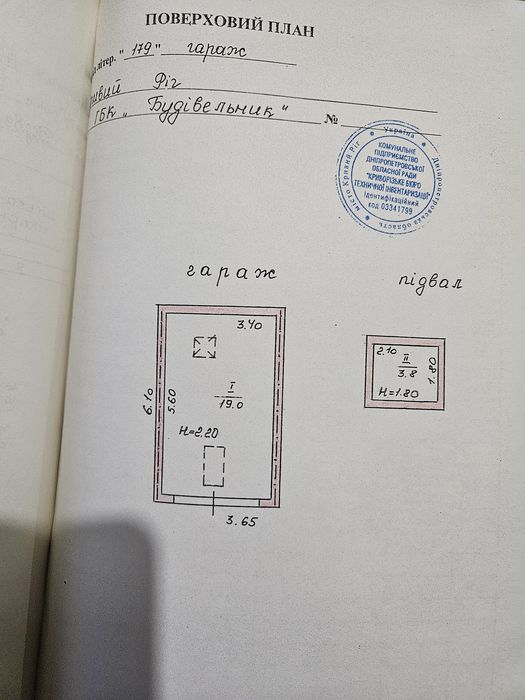 ПОВЕРХОВИЙ ПЛАН
літер. "179" гараж
Ріг
ГБК „Будівельник"
№
Україна * Дніпропетровська область * місто Кривий Ріг *
КОМУНАЛЬНЕ
ПІДПРИЄМСТВО
ДНІПРОПЕТРОВСЬКОЇ
ОБЛАСНОЇ РАДИ
"КРИВОРІЗЬКЕ БЮРО
ТЕХНІЧНОЇ ІНВЕНТАРИЗАЦІЇ"
Ідентифікаційний
код 03341799
гараж
підвал
3.40
6.10
5.60
I
19.0
H=2.20
3.65
2.10
II
3.8
1.80
H=1.80